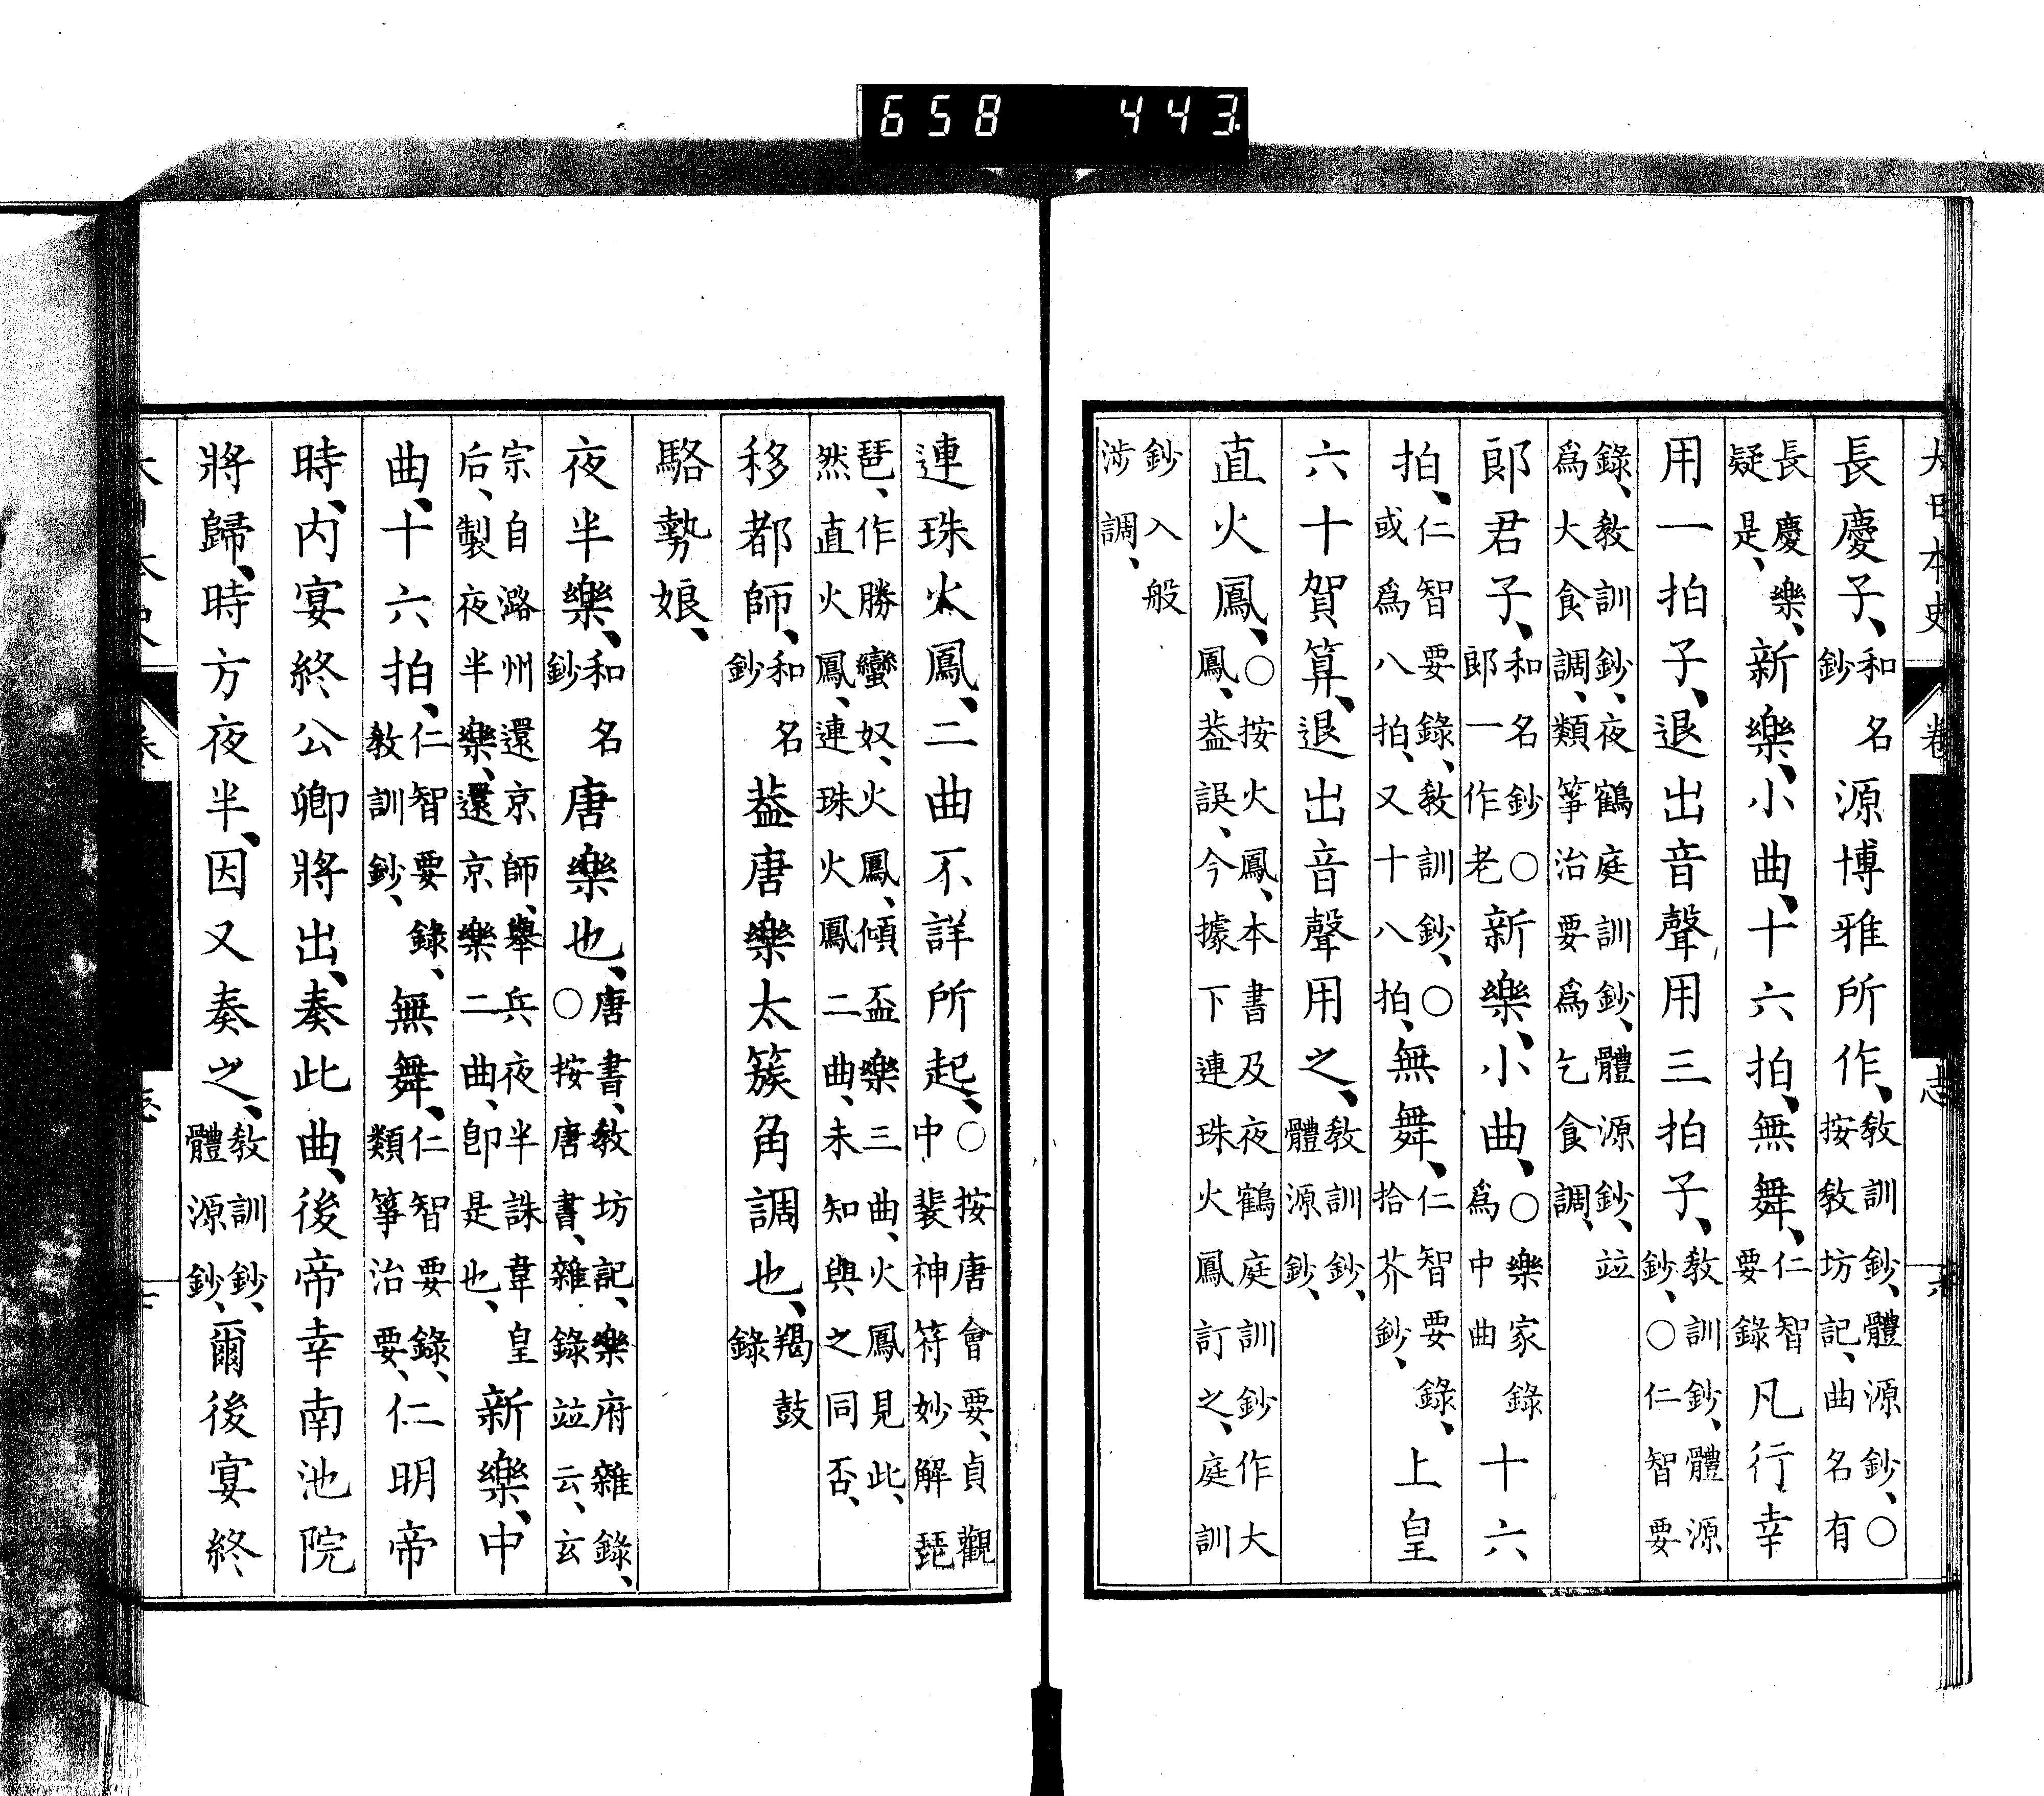 658 443
大日本史 卷 志 六
長慶子、和名鈔源博雅所作、教訓鈔、體源鈔、○按教坊記、曲名有
長慶樂、疑是、新樂、小曲、十六拍、無舞、仁智要錄凡行幸
用一拍子、退出音聲用三拍子、教訓鈔、體源鈔、○仁智要
錄、教訓鈔、夜鶴庭訓鈔、體源鈔、竝爲大食調、類箏治要爲乞食調、
郞君子、和名鈔○郞一作老新樂、小曲、○樂家錄爲中曲十六
拍、仁智要錄、教訓鈔、○或爲八拍、又十八拍、無舞、仁智要錄、拾芥鈔、上皇
六十賀算、退出音聲用之、教訓鈔、體源鈔、
直火鳳、○按火鳳、本書及夜鶴庭訓鈔作大鳳、葢誤、今據下連珠火鳳訂之、庭訓
鈔入般涉調、
連珠火鳳、二曲不詳所起、○按唐會要、貞觀中裴神符妙解琵
琶、作勝蠻奴、火鳳、傾盃樂三曲、火鳳見此、然直火鳳、連珠火鳳二曲、未知與之同否、
移都師、和名鈔葢唐樂太簇角調也、羯鼓錄
駱勢娘、
夜半樂、和名鈔唐樂也、唐書、教坊記、樂府雜錄、○按唐書、雜錄竝云、玄
宗自潞州還京師、擧兵夜半誅韋皇后、製夜半樂、還京樂二曲、卽是也、新樂、中
曲、十六拍、仁智要錄、教訓鈔、無舞、仁智要錄、類箏治要、仁明帝
時、內宴終公卿將出、奏此曲、後帝幸南池院
將歸、時方夜半、因又奏之、教訓鈔、體源鈔、爾後宴終